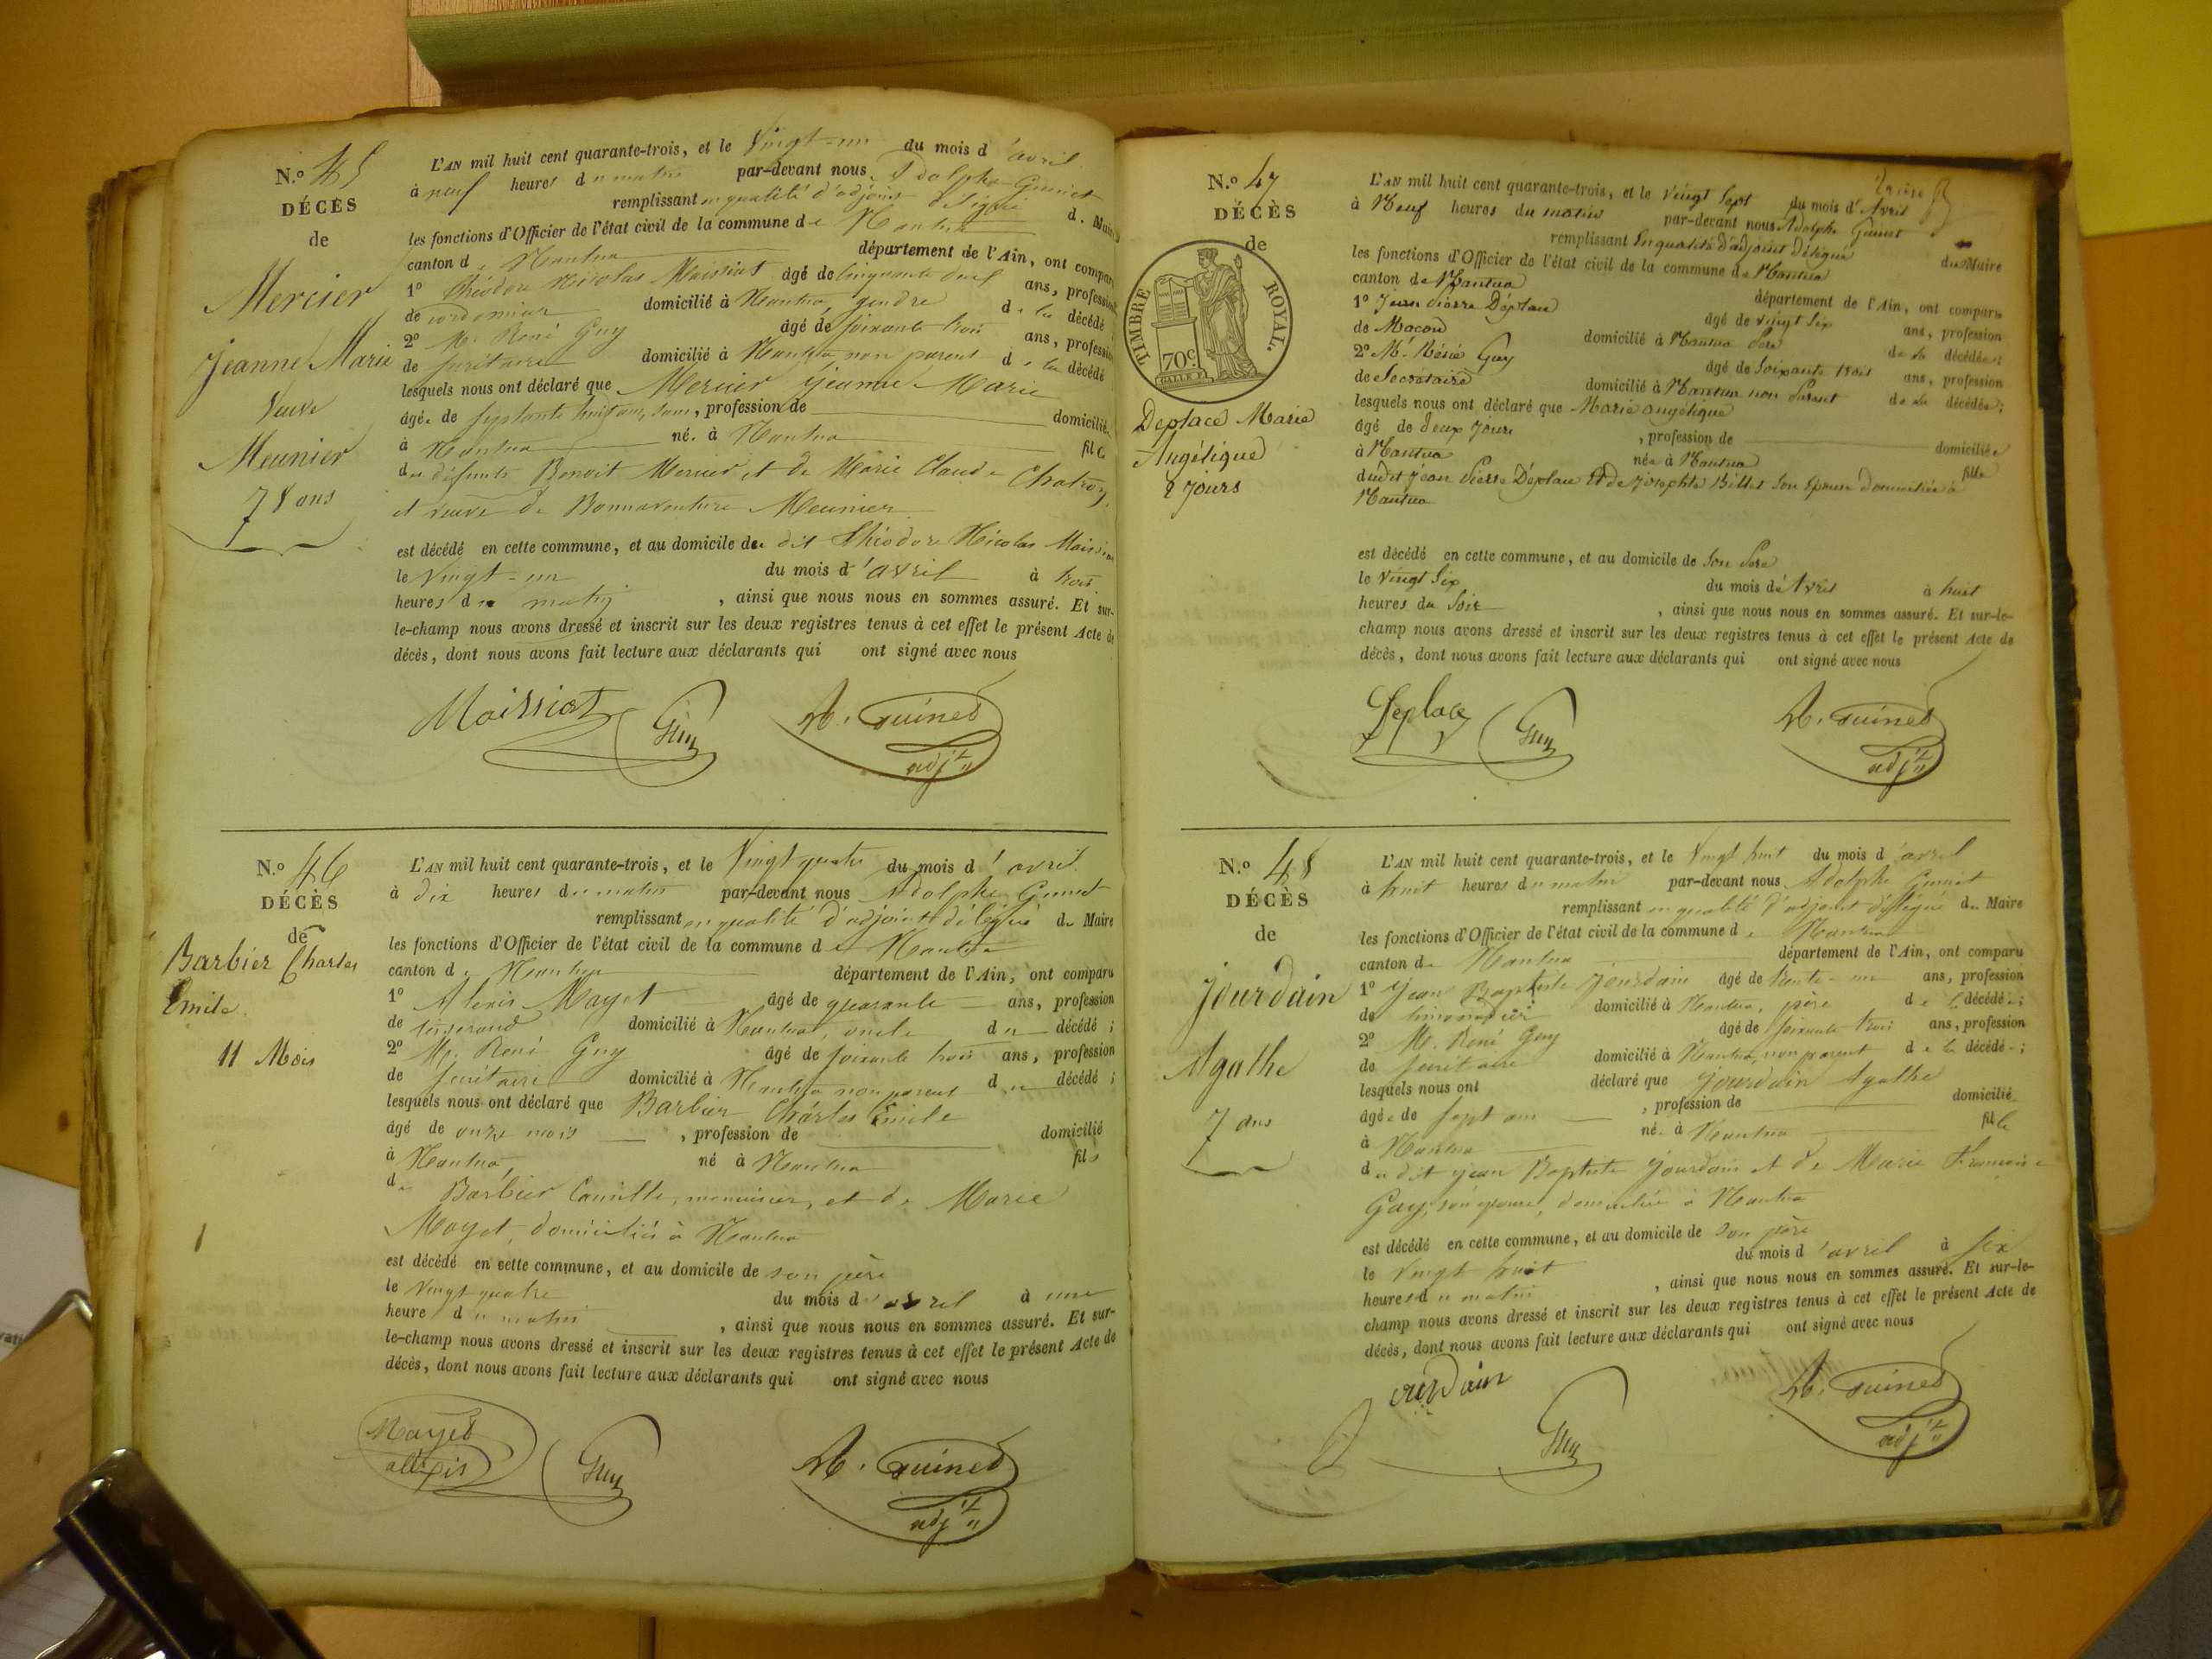 N.º 45
DÉCÈS
de
Mercier
Jeanne Marie
Veuve
Meunier
78 ans
L'AN mil huit cent quarante-trois, et le Vingt-un du mois d'avril
à neuf heures du matin par-devant nous Adolphe Guinet
remplissant en qualité d'adjoint du Maire
les fonctions d'Officier de l'état civil de la commune de Nantua
canton de Nantua département de l'Ain, ont comparu
1º Théodore Nicolas Moissiat âgé de Cinquante ans, profession
de cordonnier domicilié à Nantua, gendre de la décédé
2º Mr. René Guy âgé de soixante trois ans, profession
de secrétaire domicilié à Nantua non parent de la décédé
lesquels nous ont déclaré que Mercier Jeanne Marie
âgée de septante huit ans, sans, profession de domiciliée
à Nantua née à Nantua fille
des défunts Benoit Mercier et de Marie Claude
et veuve de Bonnaventure Meunier
est décédé en cette commune, et au domicile du dit Théodore Nicolas Moissiat
le vingt-un du mois d'avril à trois
heures du matin, ainsi que nous nous en sommes assuré. Et sur-
le-champ nous avons dressé et inscrit sur les deux registres tenus à cet effet le présent Acte de
décès, dont nous avons fait lecture aux déclarants qui ont signé avec nous
Moissiat Guy A. Guinet
adjt
N.º 46
DÉCÈS
de
Barbier Charles
Emile
11 Mois
L'AN mil huit cent quarante-trois, et le Vingt quatre du mois d'avril
à dix heures du matin par-devant nous Adolphe Guinet
remplissant en qualité d'adjoint délégué du Maire
les fonctions d'Officier de l'état civil de la commune de Nantua
canton de Nantua département de l'Ain, ont comparu
1º Alexis Mayet âgé de quarante ans, profession
de tisserand domicilié à Nantua, oncle du décédé ;
2º Mr. René Guy âgé de soixante trois ans, profession
de secrétaire domicilié à Nantua non parent du décédé ;
lesquels nous ont déclaré que Barbier Charles Emile
âgé de onze mois, profession de domicilié
à Nantua, né à Nantua fils
de Barbier Camille, menuisier, et de Marie
Mayet, domiciliés à Nantua
est décédé en cette commune, et au domicile de son père
le vingt quatre du mois d'avril à une
heure du matin, ainsi que nous nous en sommes assuré. Et sur-
le-champ nous avons dressé et inscrit sur les deux registres tenus à cet effet le présent Acte de
décès, dont nous avons fait lecture aux déclarants qui ont signé avec nous
Mayet
alexis Guy A. Guinet
adjt
N.º 47
DÉCÈS
de
TIMBRE ROYAL.
70c.
Deplace Marie
Angélique
2 Jours
L'AN mil huit cent quarante-trois, et le vingt Sept du mois d'Avril
à Neuf heures du matin par-devant nous Adolphe Guinet
remplissant En qualité D'adjoint Délégué du Maire
les fonctions d'Officier de l'état civil de la commune de Nantua
canton de Nantua département de l'Ain, ont comparu
1º Jean Pierre Déplace âgé de vingt Six ans, profession
de Maçon domicilié à Nantua Père de la décédée ;
2º Mr. Guy âgé de Soixante trois ans, profession
de Secrétaire domicilié à Nantua non Parent de la décédée ;
lesquels nous ont déclaré que Marie angélique
âgé de deux Jours, profession de domiciliée
à Nantua née à Nantua fille
dudit Jean Pierre Déplace Et de Josephte Billet Son Epouse Domiciliée à
Nantua
est décédé en cette commune, et au domicile de Son Père
le vingt Six du mois d'Avril à huit
heures du Soir, ainsi que nous nous en sommes assuré. Et sur-le-
champ nous avons dressé et inscrit sur les deux registres tenus à cet effet le présent Acte de
décès, dont nous avons fait lecture aux déclarants qui ont signé avec nous
Deplace Guy A. Guinet
adjt
N.º 48
DÉCÈS
de
Jourdain
Agathe
7 ans
L'AN mil huit cent quarante-trois, et le Vingt huit du mois d'avril
à huit heures du matin par-devant nous Adolphe Guinet
remplissant en qualité d'adjoint délégué du Maire
les fonctions d'Officier de l'état civil de la commune de Nantua
canton de Nantua département de l'Ain, ont comparu
1º Jean Baptiste Jourdain âgé de trente-un ans, profession
de domicilié à Nantua, père de la décédée ;
2º Mr. René Guy âgé de soixante trois ans, profession
de secrétaire domicilié à Nantua, non parent de la décédée ;
lesquels nous ont déclaré que Jourdain Agathe
âgée de sept ans, profession de domiciliée
à Nantua née à Nantua fille
du dit Jean Baptiste Jourdain et de Marie Françoise
Gay, son épouse, domiciliée à Nantua
est décédé en cette commune, et au domicile de son père
le vingt huit du mois d'avril à six
heures du matin, ainsi que nous nous en sommes assuré. Et sur-le-
champ nous avons dressé et inscrit sur les deux registres tenus à cet effet le présent Acte de
décès, dont nous avons fait lecture aux déclarants qui ont signé avec nous
Jourdain Guy A. Guinet
adjt